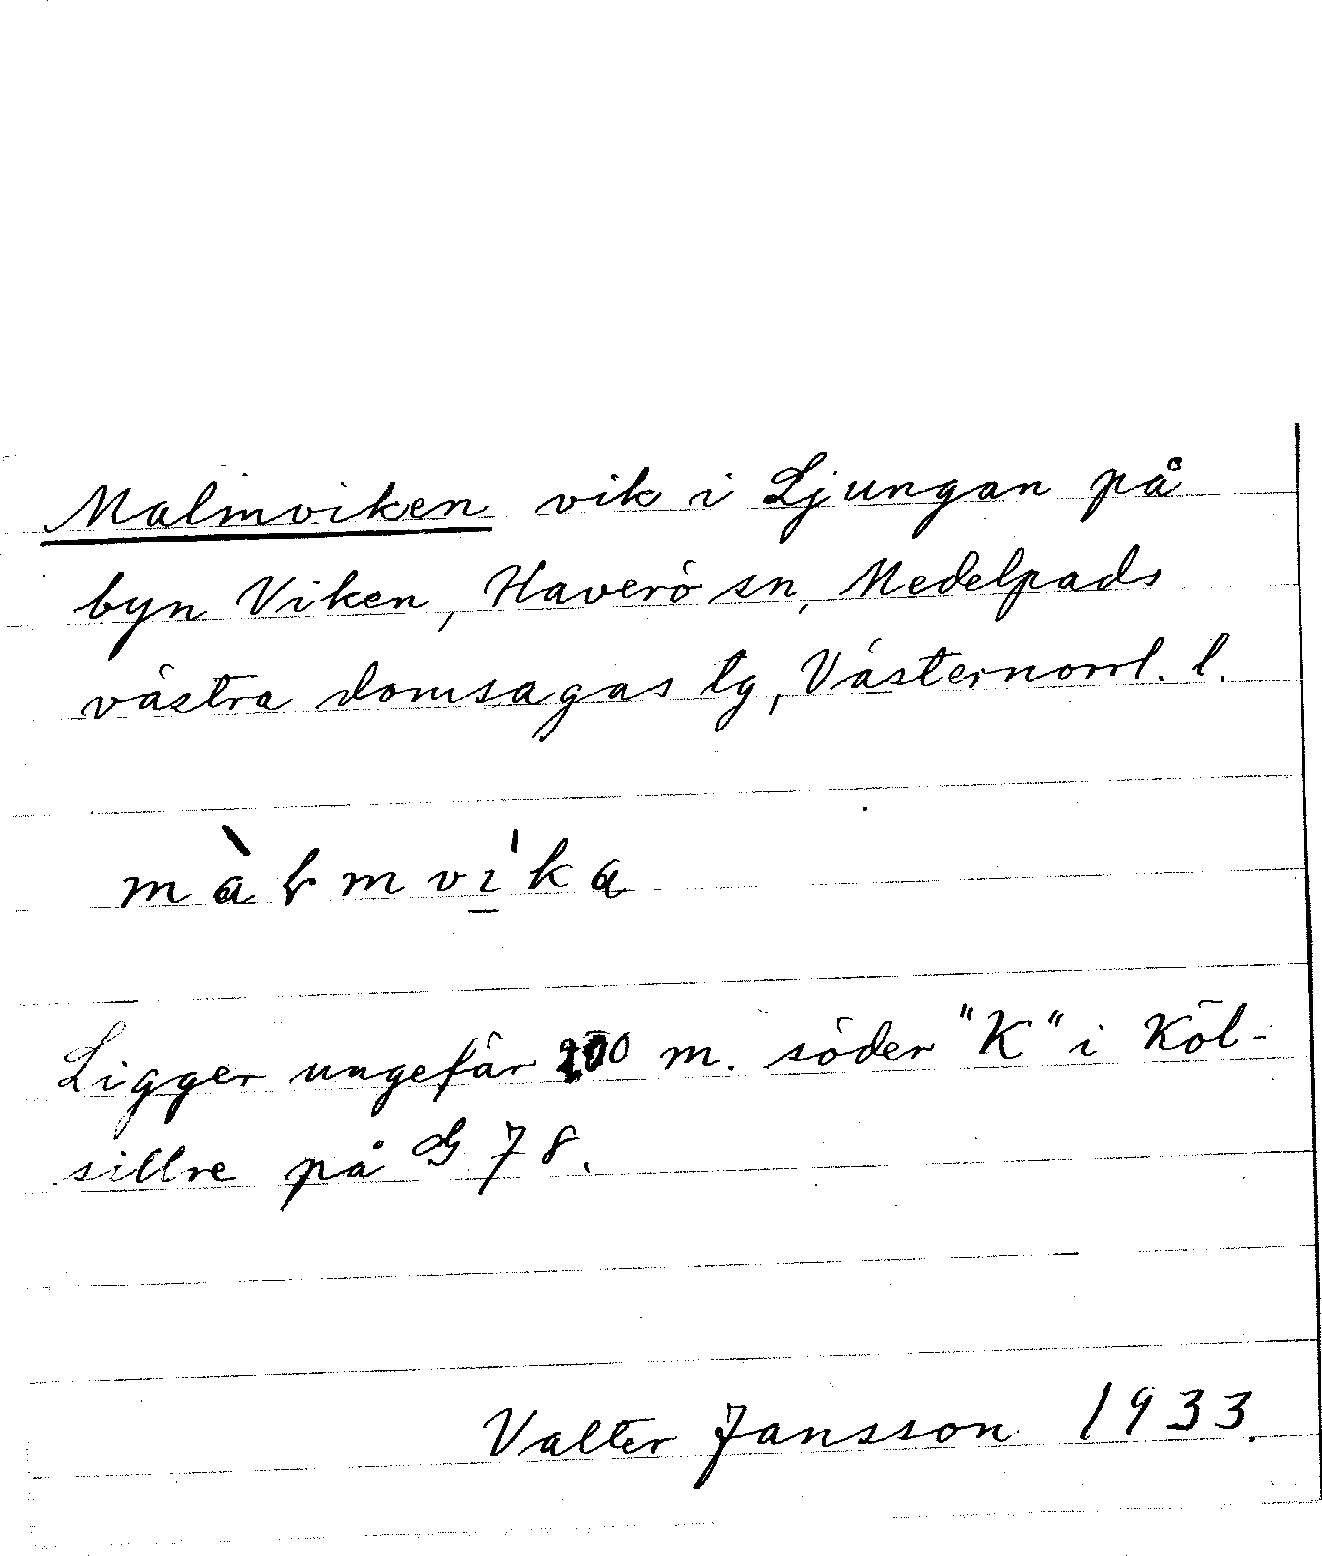 Malmviken vik i Ljungan på
byn Viken, Haverö sn, Medelpads
västra domsagas tg, Västernorrl. l.
màɽmvi̠'ka
Ligger ungefär 200 m. söder "K" i Köl-
sillre på G 78.
Valter Jansson 1933.